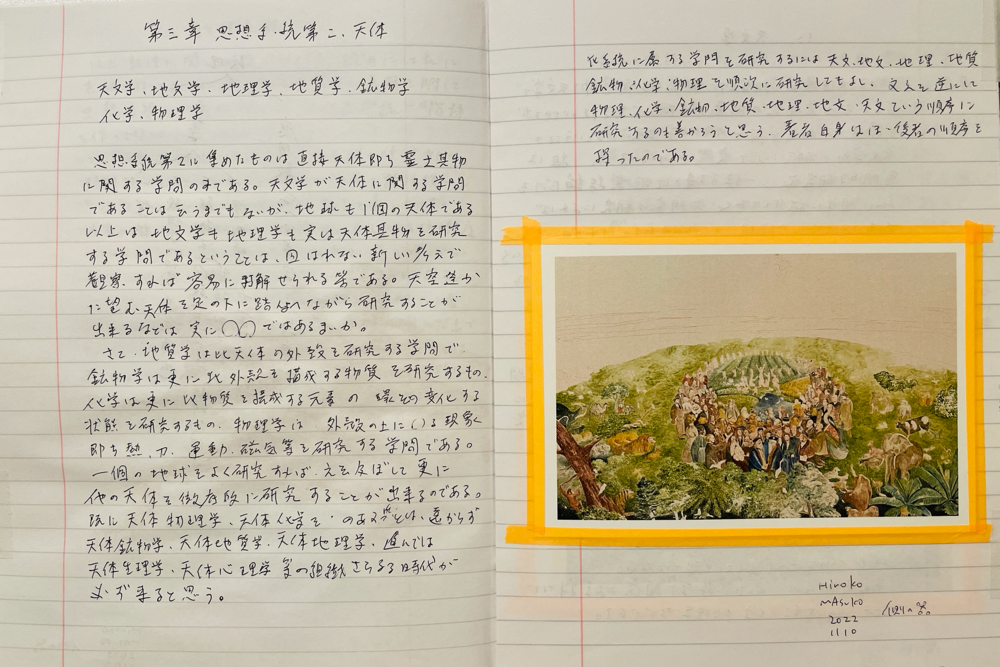 第三章 思想系統第二、天体
天文学、地文学、地理学、地質学、鉱物学
化学、物理学
思想系統第二に集めたものは直接天体即ち
に関する学問のみである。天文学が天体に関する学問
であることは云うまでもないが、地球も亦1個の天体である
以上は地文学も地理学も実は天体其物を研究
する学問であるということは、囚はれない新しい考えで
観察すれば容易に理解せられる筈である。天空遥か
に望む天体を足の下に踏へながら研究することが
出来るなどは実に〇〇ではあるまいか。
さて、地質学は此天体の外殻を研究する学問で
鉱物学は更に此外殻を構成する物質を研究するもの、
化学は更に此物質を構成する元素の 変化する
状態を研究するもの、物理学は 外殻の上に 現象
即ち熱、力、運動、磁気等を研究する学問である。
一個の地球をよく研究すれば、之を及ぼして更に
他の天体を 研究することが出来るのである。
既に天体物理学、天体化学 の 遠からず
天体鉱物学、天体地質学、天体地理学、進んでは
天体生理学、天体心理学等の組織せらるる時代が
必ず来ると思う。
此系統に属する学問を研究するには天文、地文、地理、地質
鉱物、化学、物理を順次に研究してもよし、又之を逆にして
物理、化学、鉱物、地質、地理、地文、天文という順序に
研究するのも善かろうと思う。著者自身はほぼ後者の順序を
採ったのである。
Hiroko
MASuko
2022
1110